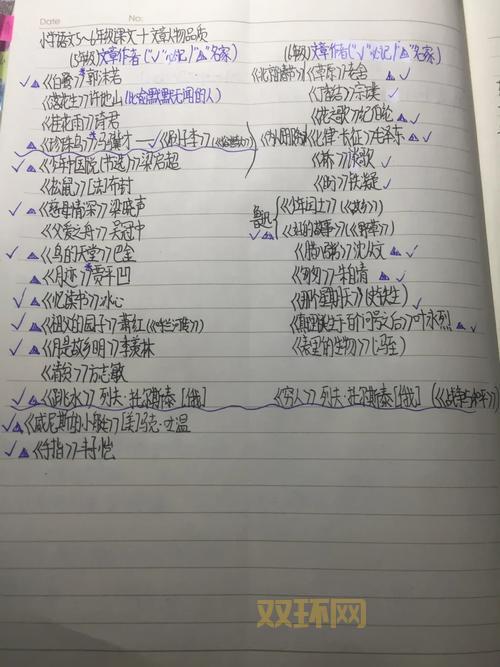 Date No:
小学语文5~6年级课文+文章人物品质
(5年级)文章作者("√"必记/"△"名家)
√△《白鹭》郭沫若
《落花生》许地山(比喻默默无闻的人)
《桂花雨》琦君
√△《珍珠鸟》冯骥才——√《刷子李》
√△《少年中国说(节选)》梁启超
《松鼠》[法]布封
√△《慈母情深》梁晓声
《父爱之舟》吴冠中
√△《鸟的天堂》巴金
△《月迹》贾平凹
√△《忆读书》冰心
√△《祖父的园子》萧红(《呼兰河传》)
√△《月是故乡明》季羡林
《清贫》方志敏
√△《跳水》列夫·托尔斯泰[俄]
√△《威尼斯的小艇》[美]马克·吐温
√△《手指》丰子恺
(6年级)文章作者("√"必记/"△"名家)
《北京的春节》《草原》老舍△√
《丁香结》宗璞√
《花之歌》纪伯伦△√
《七律·长征》毛泽东△√
《盼》铁凝√
鲁迅√△
《少年闰土》(《故乡》)
《好的故事》(《野草》)
《腊八粥》沈从文△√
《匆匆》朱自清△√
《那个星期天》(史铁生)√
《真理诞生于一百个问号之后》叶永烈△√
《表里的生物》(冯至)
《穷人》列夫·托尔斯泰[俄](《战争与和平》)
双环网